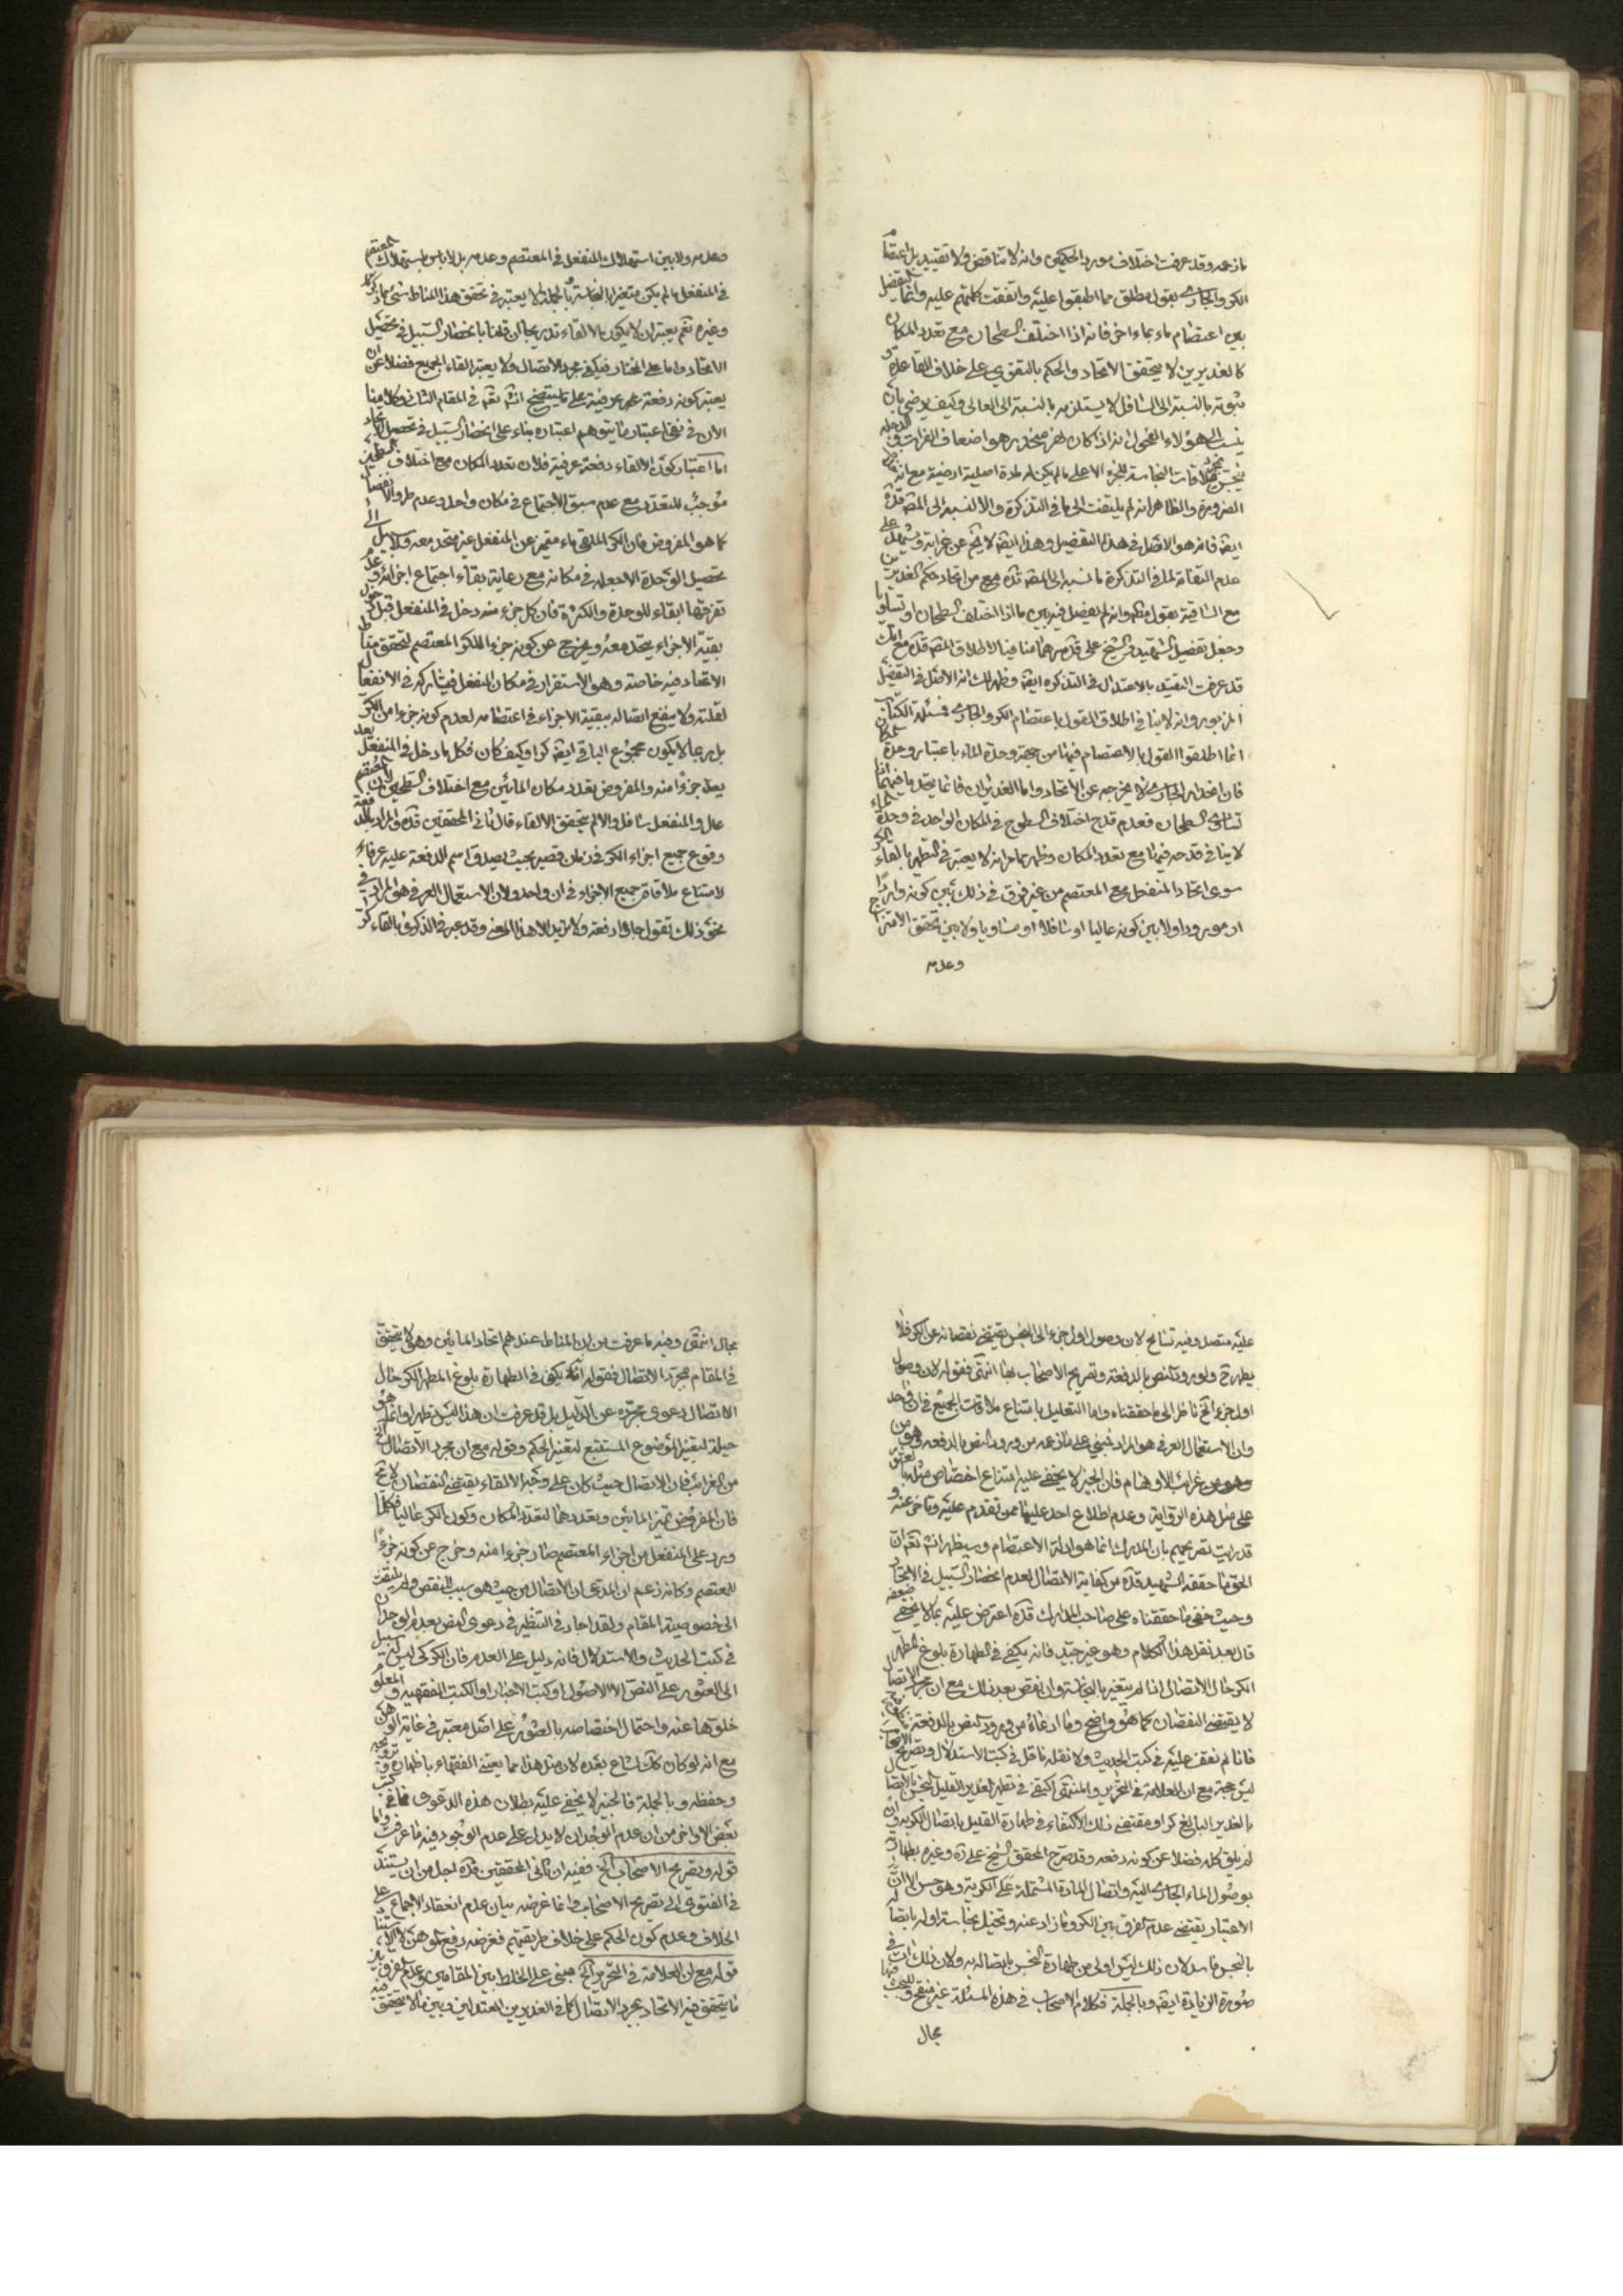 مازعمه وقد عرفت اختلاف مورد الحكمين وانه لا تناقض ولا تقييد بل اعتصام
الكر والجاري بقول مطلق مما اطبقوا عليه واتفقت كلمتهم عليه وانما التفصيل
بين اعتصام ماء بماء اخر فانه اذا اختلف السطحان مع تعدد المكان
كالغديرين لا يتحقق الاتحاد والحكم بالتقوي على خلاف القاعدة
ثبوته بالنسبة الى السافل لا يستلزمه بالنسبة الى العالي وكيف يرضى بان
ينسب الى هؤلاء الفحول انه اذا كان نهر منحدر هو اضعاف الفرات والدجلة
ينجس بملاقات النجاسة للجزء الاعلى مالم يكن له مادة اصلية ارضية مع انه
الضرورة والظاهر انه لم يلتفت الى ما في التذكرة والا لنسبه الى المصنف قده
ايضا فانه هو الاصل في هذا التفصيل وهذا ايضا لا يخ عن غرابة
عدم التفاته لما في التذكرة ما نسبه الى المصنف قده من اتحاد حكم الغديرين
مع الساقية بقول مطلق وانه لم يفصل فيه بين ما اذا اختلف السطحان او تساويا
وجعل تفصيل الشهيد والشيخ علي قدس سرهما منافيا لاطلاق المصنف قده مع انك
قد عرفت التقييد بالاعتدال في التذكرة ايضا وظهر لك انه الاصل في التفصيل
المزبور وانه لا ينافي اطلاق القول باعتصام الكر والجاري
انما اطلقوا القول بالاعتصام فيهما من جهة وحدة الماء باعتبار وحدة المكان
فان انحدار الجاري لا يخرجه عن الاتحاد واما الغديران فانما يتحد ما فيهما اذا
تساوى السطحان فعدم قدح اختلاف السطوح في المكان الواحد في وحدة الماء
لا ينافي قدحه فيهما مع تعدد المكان وظهر مما مر انه لا يعتبر في التطهير بالقاء الكر
سوى اتحاد المنفعل مع المعتصم من غير فرق في ذلك بين كونه واردا
او مورودا ولا بين كونه عاليا او سافلا او مساويا ولا بين تحقق الامتزاج
وعدمه
وعدمه ولا بين استهلاك المنفعل في المعتصم وعدمه بل لا باس باستهلاك المعتصم
في المنفعل مالم يكن متغيرا بالنجاسة وبالجملة لا يعتبر في تحقق هذا المناط شيء مما ذكر
وغيره نعم يعتبر ان لا يكون الالقاء تدريجا ان قلنا بانحصار السبيل في تحصيل
الاتحاد واما على المختار فيكفي مجرد الاتصال ولا يعتبر القاء الجميع فضلا عن ان
يعتبر كونه دفعة عرفية على ما يتضح انشاء الله تعالى في المقام الثاني وكلامنا
الان في نفي اعتبار ما يتوهم اعتباره بناء على انحصار السبيل في تحصيل الاتحاد
اما اعتبار كون الالقاء دفعة عرفية فلان تعدد المكان مع اختلاف السطحين
موجب للتعدد مع عدم سبق الاجتماع في مكان واحد وعدم طرو الانفصال
كما هو المفروض فان الكر الملقى ماء متميز عن المنفعل غير متحد معه ولا سبيل الى
تحصيل الوحدة الا بجعله في مكانه مع رعاية بقاء اجتماع اجزائه وعدم
تفرقتها ابقاء للوحدة والكثرة فان كل جزء منه دخل في المنفعل قبل دخول
بقية الاجزاء يتحد معه ويخرج عن كونه جزء للكر المعتصم لتحقق مناط
الاتحاد فيه خاصة وهو الاستقرار في مكان المنفعل فيشاركه في الانفعال
لقلته ولا ينفع اتصاله ببقية الاجزاء في اعتصامه لعدم كونه جزءا من الكر
بل ربما لا يكون مجموع الباقي ايضا كرا وكيف كان فكل ما دخل في المنفعل يعد
يعد جزءا منه والمفروض تعدد مكان المائين مع اختلاف السطحين لان المعتصم
عال والمنفعل سافل والا لم يتحقق الالقاء قال ثاني المحققين قده والمراد بالدفعة
وقوع جميع اجزاء الكر في زمان قصير بحيث يصدق اسم الدفعة عليه عرفا
لامتناع ملاقاة جميع الاجزاء في ان واحد ولان الاستعمال العرفي هو المراد في
نحو ذلك تقول جاؤا دفعة ولا تريد الا هذا المعنى وقد عبر في الذكرى بالقاء كر
عليه متصل وفيه تسامح لان وصول اول جزء الى النجس يقتضي نقصانه عن الكر فلا
يطهر ح ولورود النص بالدفعة وتصريح الاصحاب بها انتهى فقوله لان وصول
اول جزء الخ ناظر الى ما حققناه واما التعليل بامتناع ملاقات الجميع في ان واحد
وان الاستعمال العرفي هو المراد فمبني على مازعمه من ورود النص بالدفعة وهو من
غرائب الاوهام فان الخبير لا يخفى عليه امتناع اختصاص مثله بالعثور
على مثل هذه الرواية وعدم اطلاع احد عليها ممن تقدم عليه وتاخر عنه و
قد رايت تصريحهم بان المدرك انما هو ادلة الاعتصام وسيظهر انشاء الله تعالى ان
الحق ما حققه الشهيد قده من كفاية الاتصال لعدم انحصار السبيل في الاتحاد
وحيث خفي ما حققناه على صاحب المدارك قده اعترض عليه بما لا يخفى ضعفه
قال بعد نقل هذا الكلام وهو غير جيد فانه يكفي في الطهارة بلوغ المطهر
الكر حال الاتصال اذا لم يتغير بالنجاسة وان نقص بعد ذلك مع ان مجرد الاتصال
لا يقتضي النقصان كما هو واضح وما ادعاه من ورود النص بالدفعة
فانا لم نقف عليه في كتب الحديث ولا نقله ناقل في كتب الاستدلال وتصريح الاصحاب
ليس حجة مع ان العلامة في التحرير والمنتهى اكتفى في تطهير الغدير القليل النجس باتصاله
بالغدير البالغ كرا ومقتضى ذلك الاكتفاء في طهارة القليل باتصال الكر به وان
لم يلق كله فضلا عن كونه دفعة وقد صرح المحقق الشيخ علي ره وغيره بطهارته
بوصول الماء الجاري اليه واتصال المادة المشتملة على الكرية وهو حسن الا ان
الاعتبار يقتضي عدم الفرق بين الكر وما زاد عنه وتخيل نجاسة اوله باتصاله
بالنجس فاسد لان ذلك ليس اولى من طهارة النجس باتصاله به ولان ذلك ات في
صورة الزيادة ايضا وبالجملة فكلام الاصحاب في هذه المسئلة غير منقح وللبحث فيها
مجال
مجال انتهى وفيه ما عرفت من ان المناط عندهم اتحاد المائين وهو لا يتحقق
في المقام بمجرد الاتصال فقوله انه يكفي في الطهارة بلوغ المطهر الكر حال
الاتصال دعوى مجردة عن الدليل بل قد عرفت ان هذا ليس تطهيرا وانما هو
حيلة لتغيير الموضوع المستتبع لتغير الحكم وقوله مع ان مجرد الاتصال الخ
من الغرائب فان الاتصال حيث كان على وجه الالقاء يقتضي النقصان لا مح
فان المفروض تميز المائين وتعددهما لتعدد المكان وكون الكر عاليا فكلما
ورد على المنفعل من اجزاء المعتصم صار جزءا منه وخرج عن كونه جزءا
للمعتصم وكانه زعم ان المدعى ان الاتصال من حيث هو سبب للنقص ولم يلتفت
الى خصوصية المقام ولقد اجاد في التنظير في دعوى النص بعدم الوجدان
في كتب الحديث والاستدلال فانه دليل على العدم فان الكركي ليس له سبيل
الى العثور على النص الا الاصول او كتب الاخبار او الكتب الفقهية و المعلوم
خلوها عنه واحتمال اختصاصه بالعثور على اصل معتبر في غاية الوهن
مع انه لو كان كذلك لشاع بعده لان مثل هذا مما يعتني الفقهاء باظهاره وترويجه
وحفظه وبالجملة فالخبير لا يخفى عليه بطلان هذه الدعوى فما في كتب
بعض الاواخر من ان عدم الوجدان لا يدل على عدم الوجود فيه ما عرفت واما
قوله وتصريح الاصحاب الخ ففيه ان ثاني المحققين قده اجل من ان يستند
في الفتوى الى تصريح الاصحاب وانما غرضه بيان عدم انعقاد الاجماع على
الخلاف وعدم كون الحكم على خلاف طريقتهم فغرضه دفع الموهن لا الاستناد
قوله مع ان العلامة في التحرير الخ مبني على الخلط بين المقامين وعدم الفرق بين
ما يتحقق فيه الاتحاد بمجرد الاتصال كما في الغديرين المعتدلين وبين ما لا يتحقق فيه